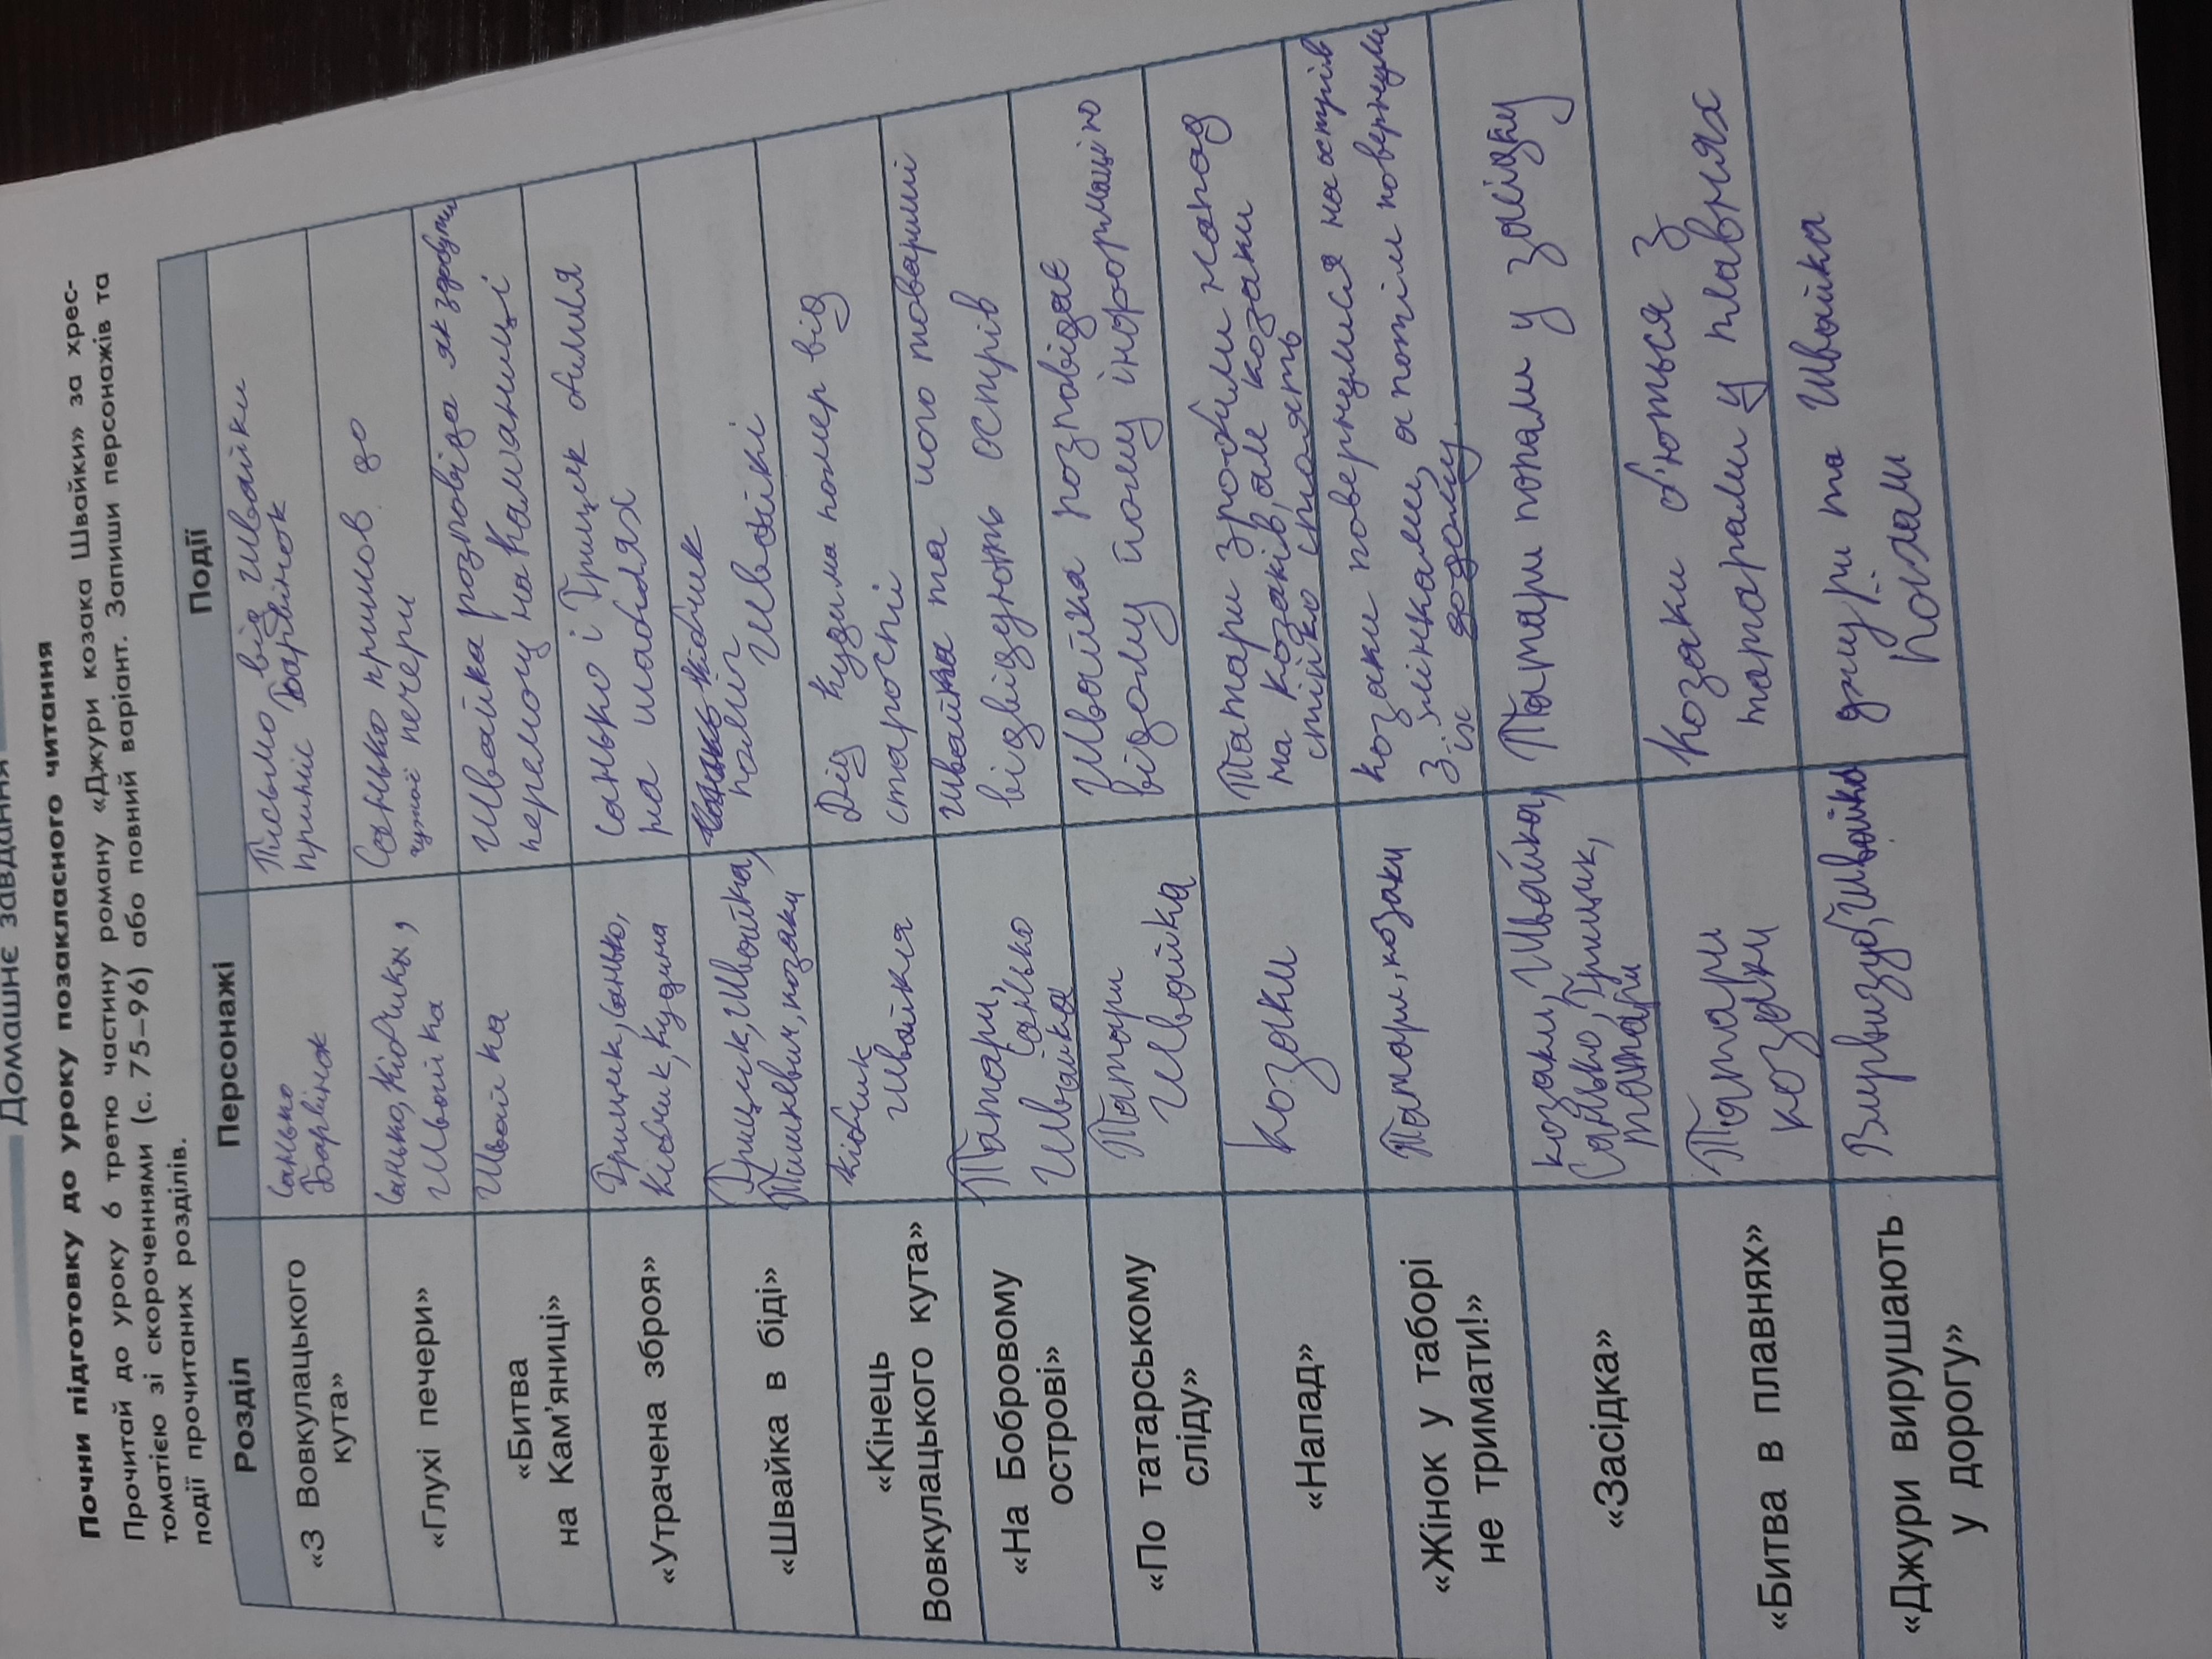 Домашнє завдання
Почни підготовку до уроку позакласного читання
Прочитай до уроку 6 третю частину роману «Джури козака Швайки» за хрес-
томатією зі скороченнями (с. 75–96) або повний варіант. Запиши персонажів та
події прочитаних розділів.
Розділ Персонажі Події
«З Вовкулацького
кута»
Санько
Барвінок
Письмо від Швайки
приніс Барвінок
«Глухі печери»
Санько, Кібчик,
Швайка
Санько прийшов до
печери
«Битва
на Кам'яниці»
Швайка
Швайка розповіда як здобули
перемогу на Камяниці
«Утрачена зброя»
Грицик, Санько,
Кібчик, Кудима
Санько і Грицик билися
на шаблях
«Швайка в біді»
Грицик, Швайка,
Тишкевич, козаки
Кібчик
поміг Швайкі
«Кінець
Вовкулацького кута»
Кібчик
Швайка
Дід Кудима помер від
старості
«На Бобровому
острові»
Татари,
Санько
Швайка
Швайка та його товариші
відвідують острів
«По татарському
сліду»
Татари
Швайка
Швайка розповідає
відому йому інформацію
«Напад»
козаки
Татари зробили напад
на козаків, але козаки
стійко стоять
«Жінок у таборі
не тримати!»
Татари, козаки
козаки повернулися на острів
з жінками, а потім повернули
їх додому
«Засідка»
козаки, Швайка,
Санько, Грицик,
татари
Татари попали у засідку
«Битва в плавнях»
Татари
козаки
Козаки б'ються з
татарами у плавнях
«Джури вирушають
у дорогу»
Вирвизуб, Швайка
джури та Швайка